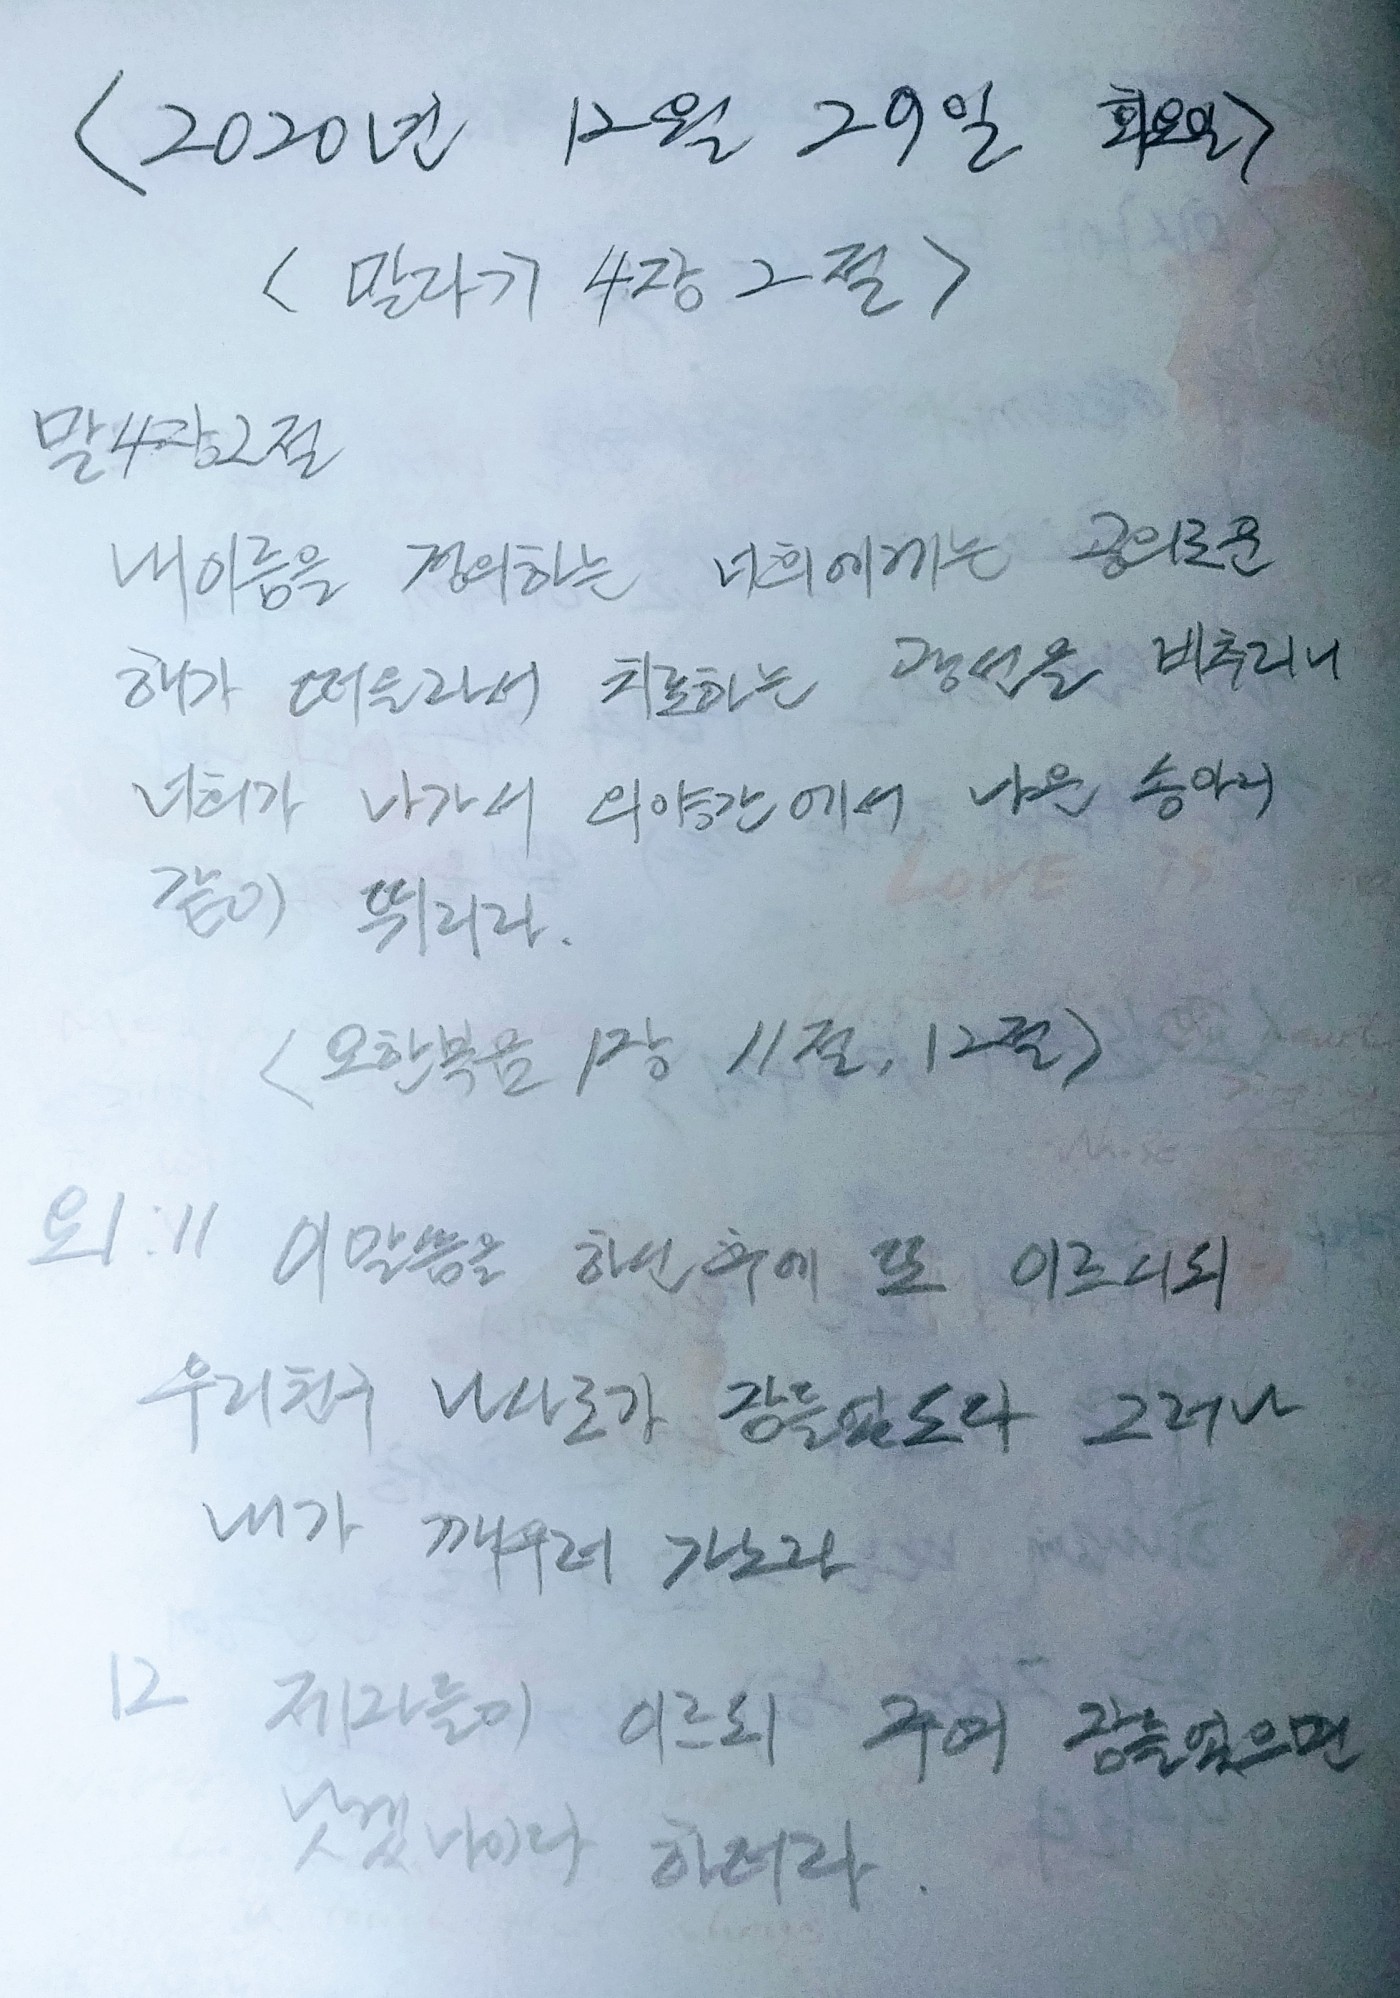 <2020년 12월 29일 화요일>
<말라기 4장 2절>
말4장2절
내이름을 경외하는 너희에게는 공의로운
해가 떠올라서 치료하는 광선을 비추리니
너희가 나가서 외양간에서 나온 송아지
같이 뛰리라.
<요한복음 1장 11절, 12절>
요1:11 이말씀을 하신 후에 또 이르시되
우리친구 나사로가 잠들었도다 그러나
내가 깨우러 가노라
12 제자들이 이르되 주여 잠들었으면
낫겠나이다 하더라.
LOVE IS